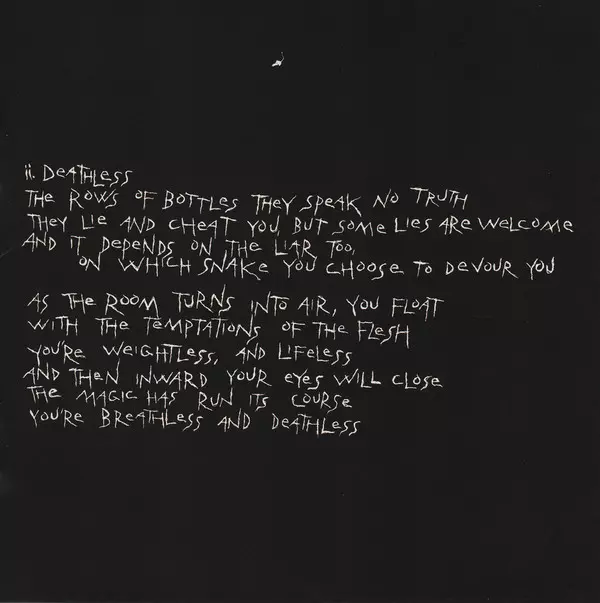 ii. DEATHLESS
THE ROWS OF BOTTLES THEY SPEAK NO TRUTH
THEY LIE AND CHEAT YOU, BUT SOME LIES ARE WELCOME
AND IT DEPENDS ON THE LIAR TOO,
ON WHICH SNAKE YOU CHOOSE TO DEVOUR YOU
AS THE ROOM TURNS INTO AIR, YOU FLOAT
WITH THE TEMPTATIONS OF THE FLESH
YOU'RE WEIGHTLESS, AND LIFELESS
AND THEN INWARD YOUR EYES WILL CLOSE
THE MAGIC HAS RUN ITS COURSE
YOU'RE BREATHLESS AND DEATHLESS